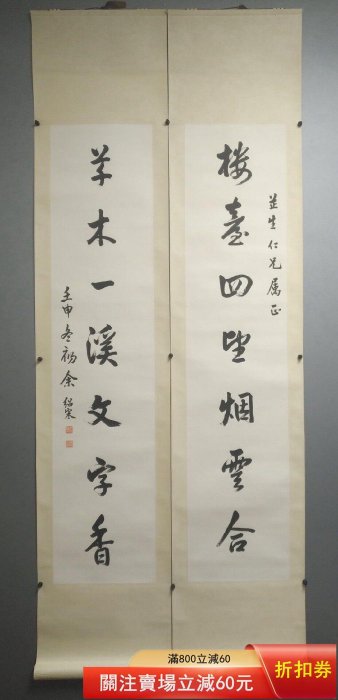 楼臺四望烟雲合
並生仁兄属正
草木一溪文字香
壬申冬初余紹宋
滿800立減60
關注賣場立減60元
折扣券